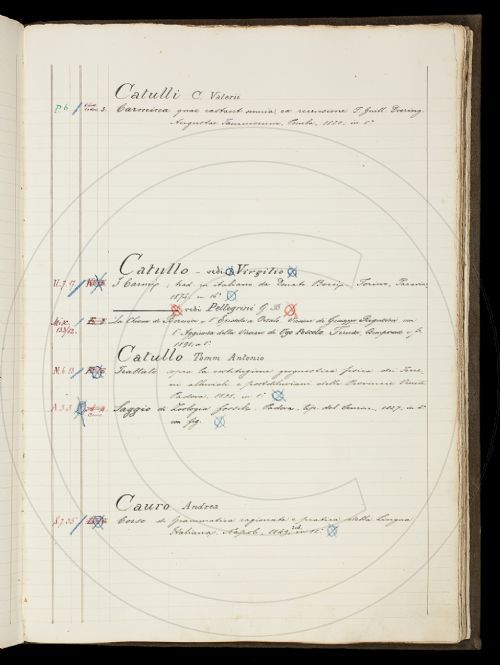 Catulli C. Valerii
P.6. 3. Carmina quae extant omnia ex recensione F. Guill. Doering.
Augustae Taurinorum, Pomba, 1820, in 8°
Catullo - vedi Virgilio
I Carmi, trad. in italiano da Donato Bocci. Torino, Paravia,
1874, in 16°
vedi Pellegrini G. B.
La Chioma di Berenice
l'Aggiunta della Versione di Ugo Foscolo.
1891, in 8°
Catullo Tomm. Antonio
N.6.13 Trattato sopra la costituzione geognostica fisica dei Terreni
alluviali o postdiluviani delle Provincie Venete
Padova, 1838, in 8°
A.3.3 Saggio di Zoologia fossile. Padova, tip. del Semin., 1827, in 4°
con fig.
Cauro Andrea
8.7.35 Corso di Grammatica ragionata e pratica della Lingua
Italiana. Napoli, in 16°